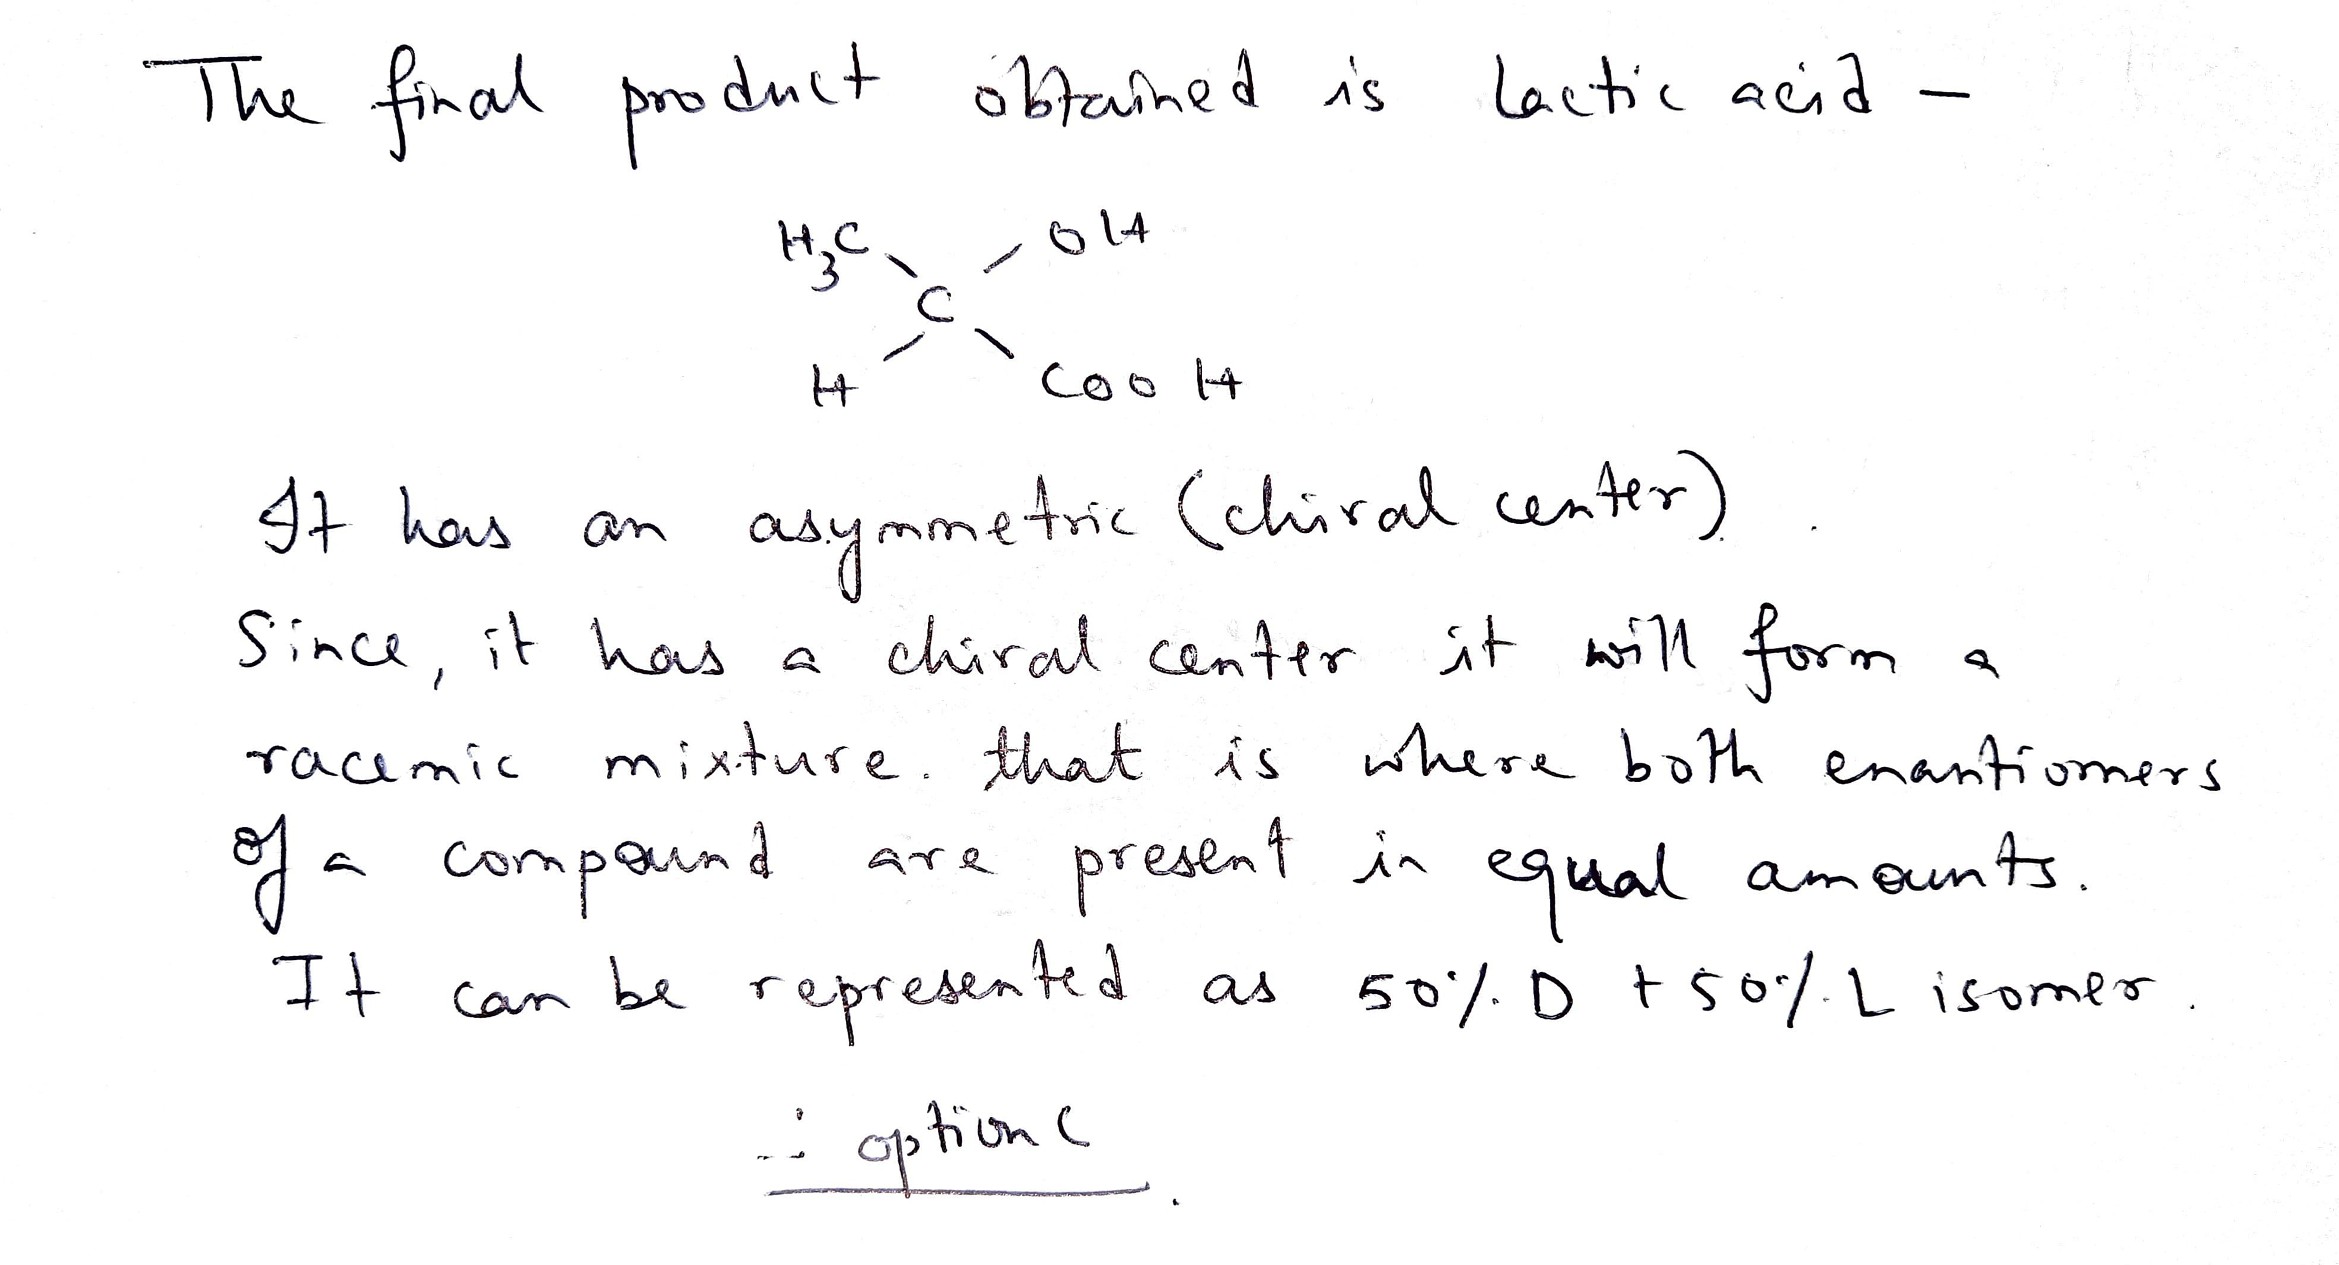 The final product obtained is lactic acid –
H₃C OH
C
H COOH
It has an asymmetric (chiral center).
Since, it has a chiral center it will form a
racemic mixture. that is where both enantiomers
of a compound are present in equal amounts.
It can be represented as 50% D + 50% L isomer.
∴ option C.